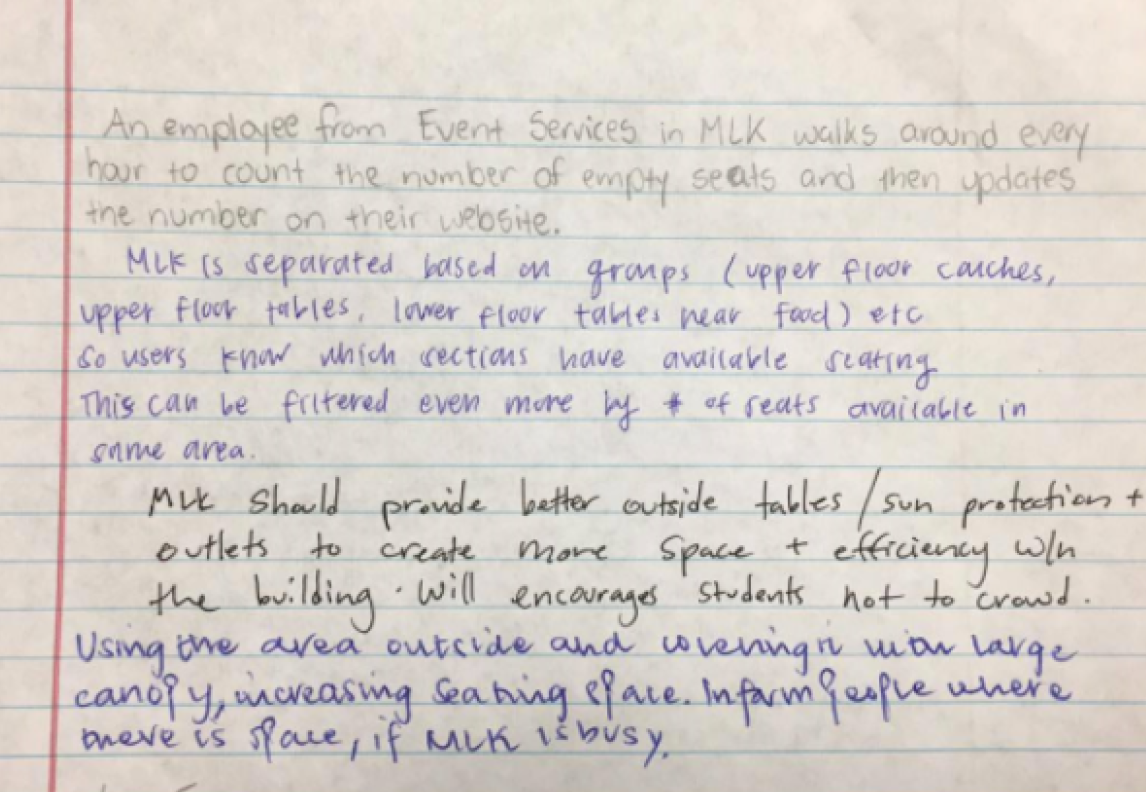 An employee from Event Services in MLK walks around every
hour to count the number of empty seats and then updates
the number on their website.
MLK is separated based on groups (upper floor couches,
upper floor tables, lower floor tables near food) etc
So users know which sections have available seating
This can be filtered even more by # of seats available in
same area.
MLK should provide better outside tables / sun protection +
outlets to create more space + efficiency w/n
the building. Will encourages students not to crowd.
Using the area outside and covering it with large
canopy, increasing seating space. Inform people where
there is space, if MLK is busy.